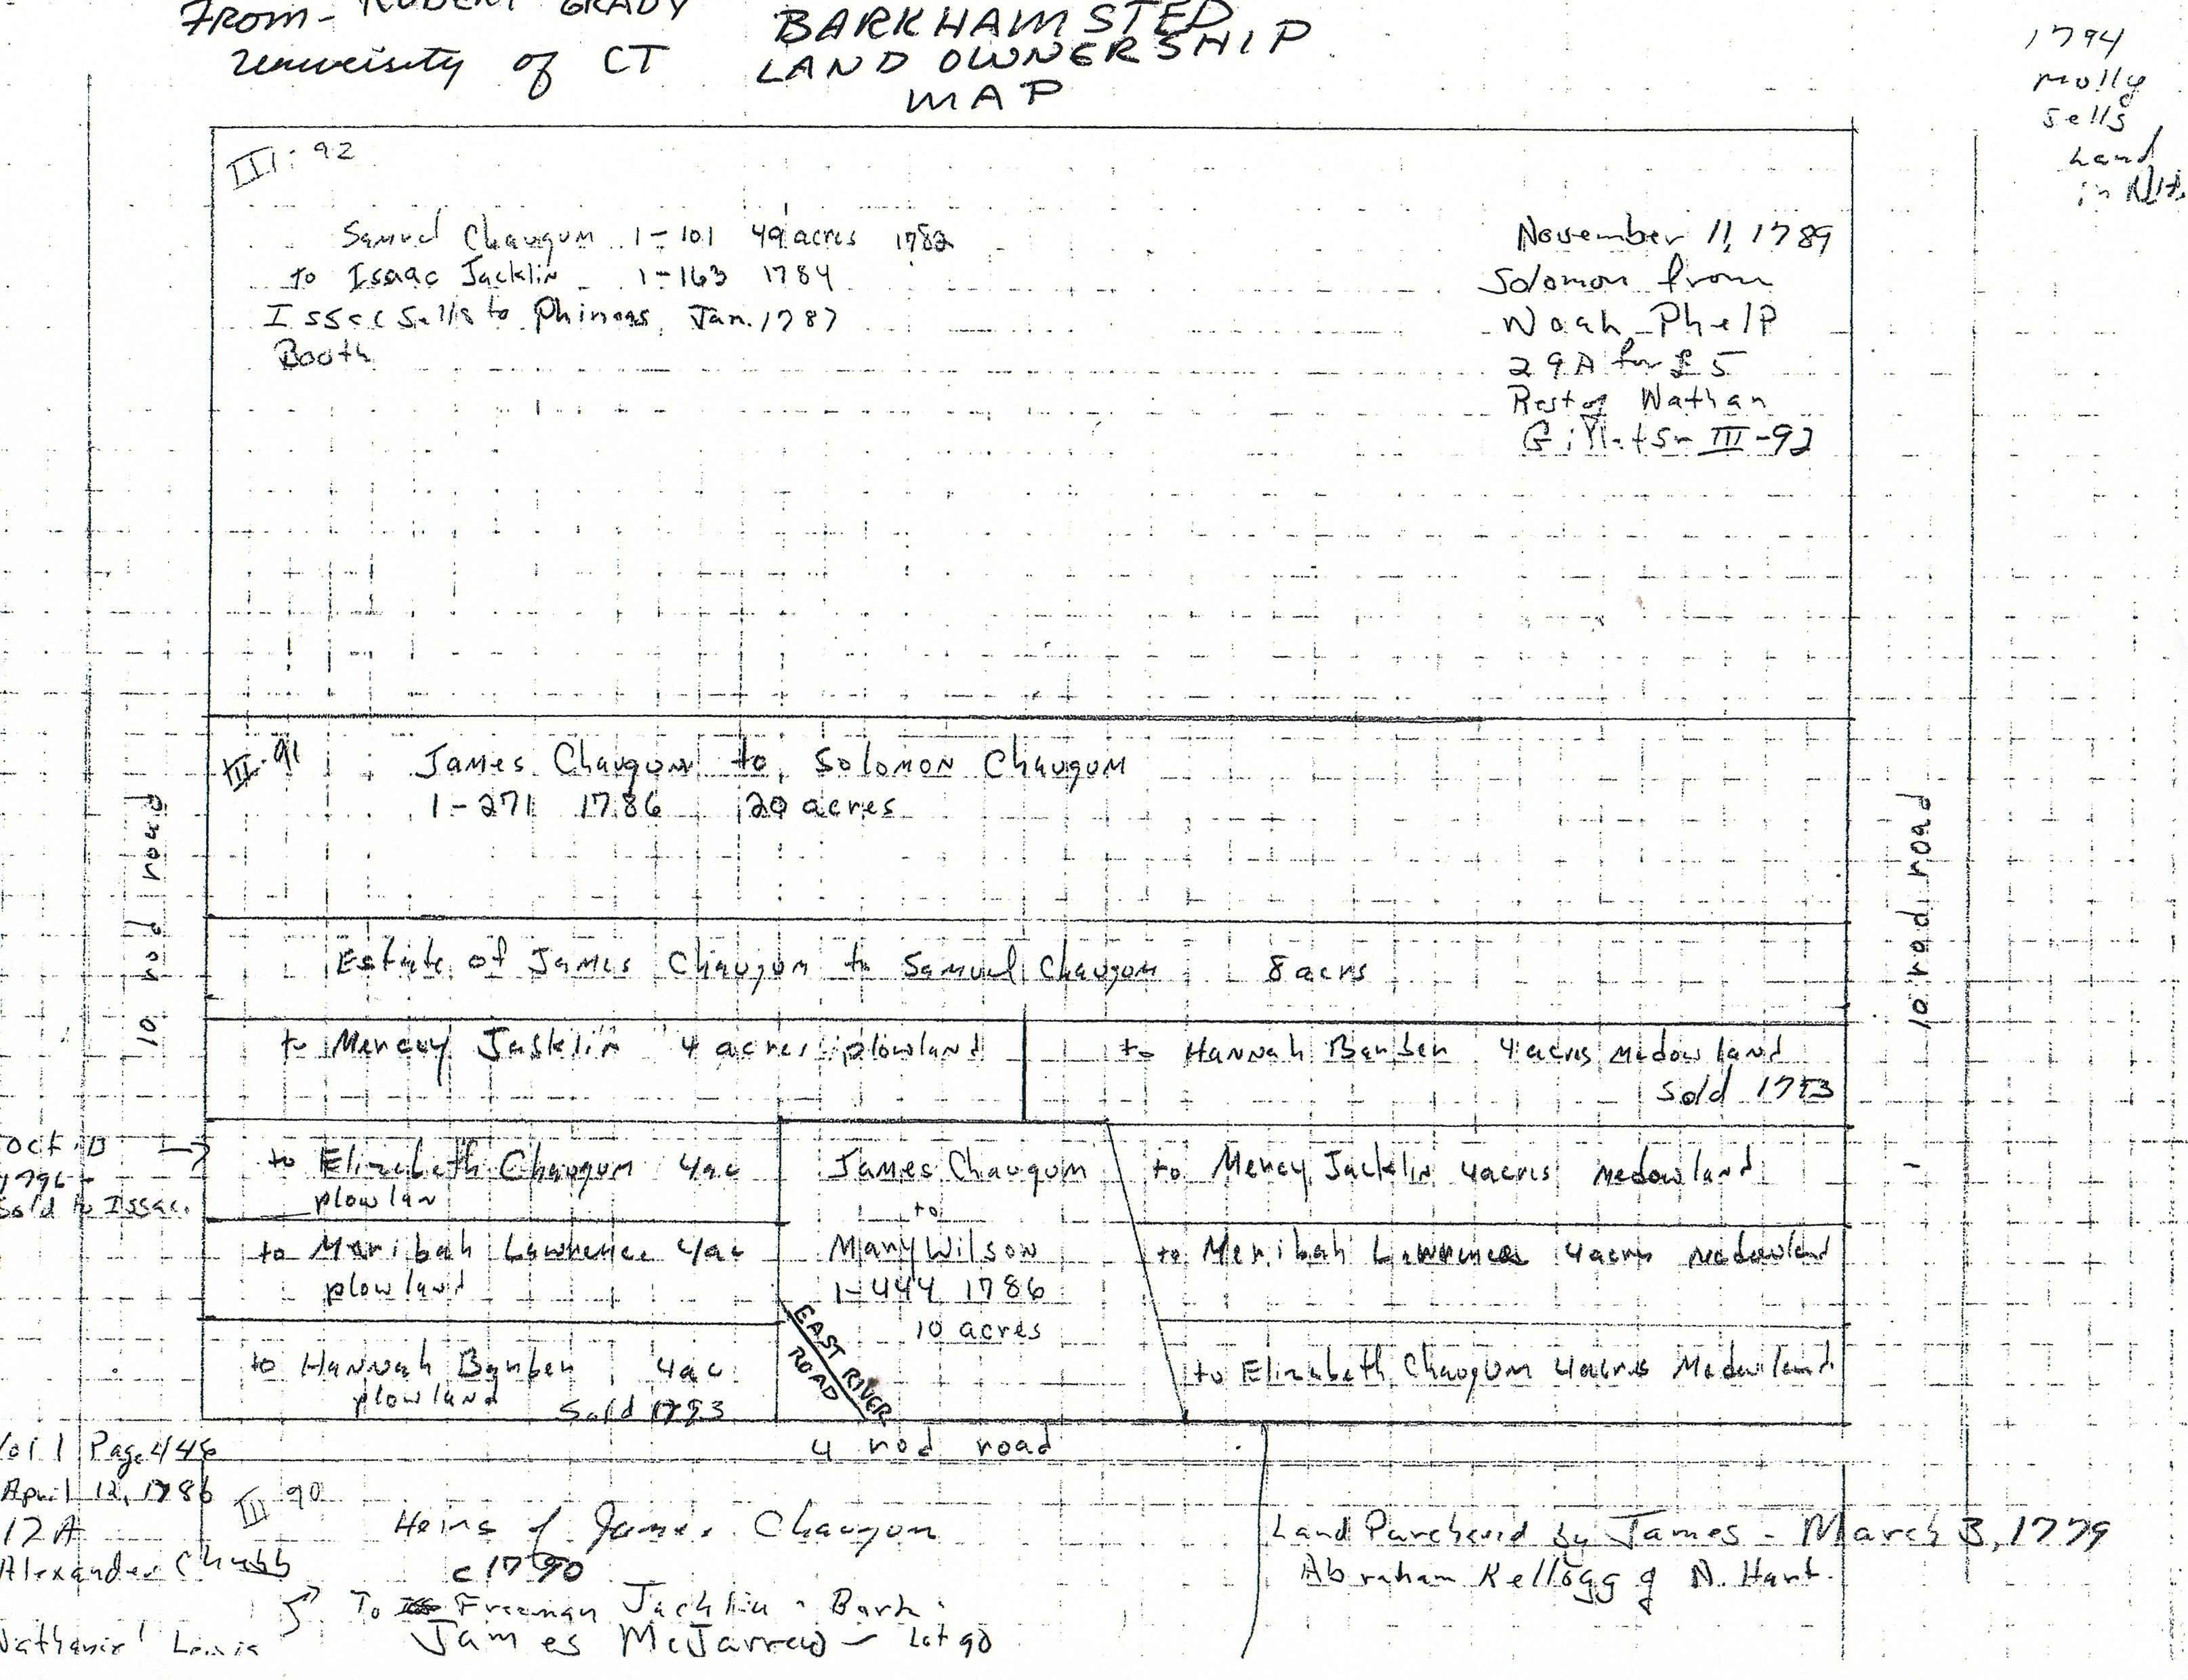 FROM - ROBERT GRADY
University of CT
BARKHAMSTED
LAND OWNERSHIP
MAP
1794
Molly
sells
Land
in
III: 92
Samuel Chaugum 1-101 49 acres 1782
to Isaac Jacklin 1-163 1784
Issac Sells to Phineas Jan. 1787
Booth
November 11, 1789
Solomon from
Noah Phelp
29A for £5
Rest of Nathan
III-92
III-91
James Chaugum to Solomon Chaugum
1-271 1786 20 acres
10 rod road
10 rod road
Estate of James Chaugum to Samuel Chaugum 8 acrs
to Mercy Jacklin 4 acres plowland
to Hannah 4 acres Medow land
Sold
Oct 13
1796
Sold to Issac.
to Elizabeth Chaugum 4ac
plowlan
James Chaugum
to
Mary Wilson
1-444 1786
10 acres
to Mercy Jacklin 4acres Medowland
to Meribah Lawrence 4ac
plowland
to Meribah Lawrence 4acres Medowland
to Hannah 4ac
plowland
Sold 1793
EAST RIVER
ROAD
to Elizabeth Chaugum 4acres Medowland
4 rod road
Vol 1 Page 446
April 12, 1786
12A
Alexander Chubb
Nathaniel Lewis
III 90
Heirs of James Chaugum
c 1790
To Freeman Jacklin - Bark.
James - Lot 90
Land Purchased by James - March 3, 1779
Abraham Kellogg of N. Hart.